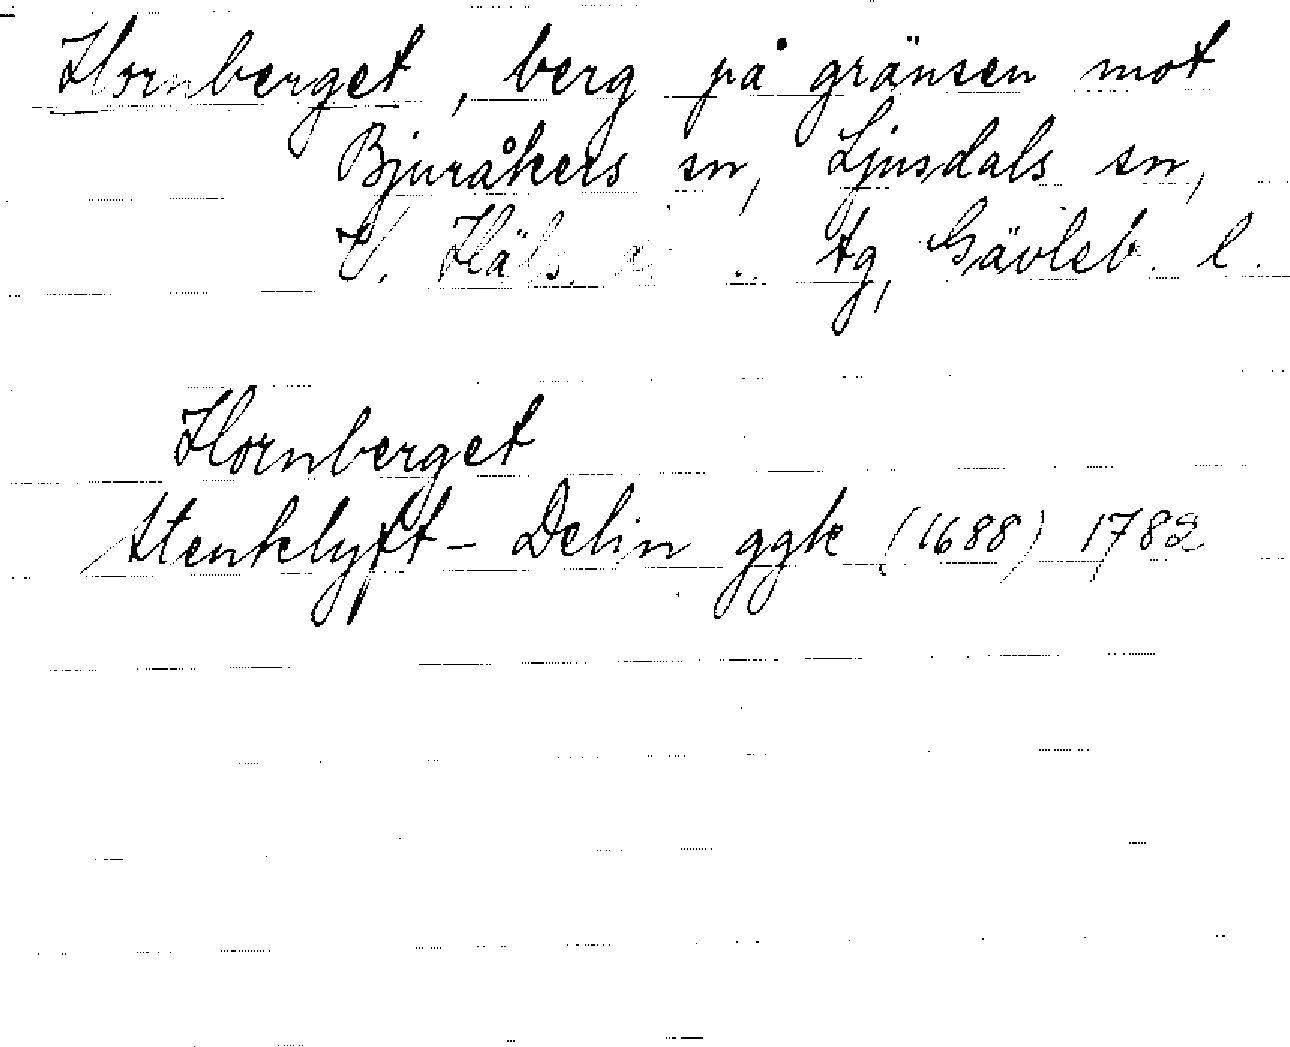 Hornberget, berg på gränsen mot
Bjuråkers sn, Ljusdals sn,
V. Häls. tg, Gävleb. l.
Hornberget
Stenklyft - Delin ggk (1688) 1782